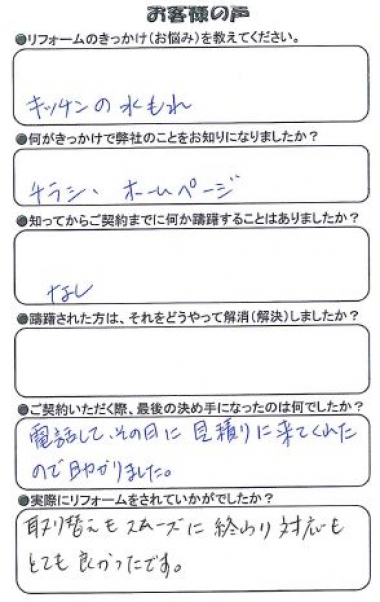 お客様の声
●リフォームのきっかけ(お悩み)を教えてください。
キッチンの水もれ
●何がきっかけで弊社のことをお知りになりましたか?
チラシ、ホームページ
●知ってからご契約までに何か躊躇することはありましたか?
なし
●躊躇された方は、それをどうやって解消(解決)しましたか?
●ご契約いただく際、最後の決め手になったのは何でしたか?
電話して、その日に見積りに来てくれた
ので助かりました。
●実際にリフォームをされていかがでしたか?
取り替えもスムーズに終わり対応も
とても良かったです。